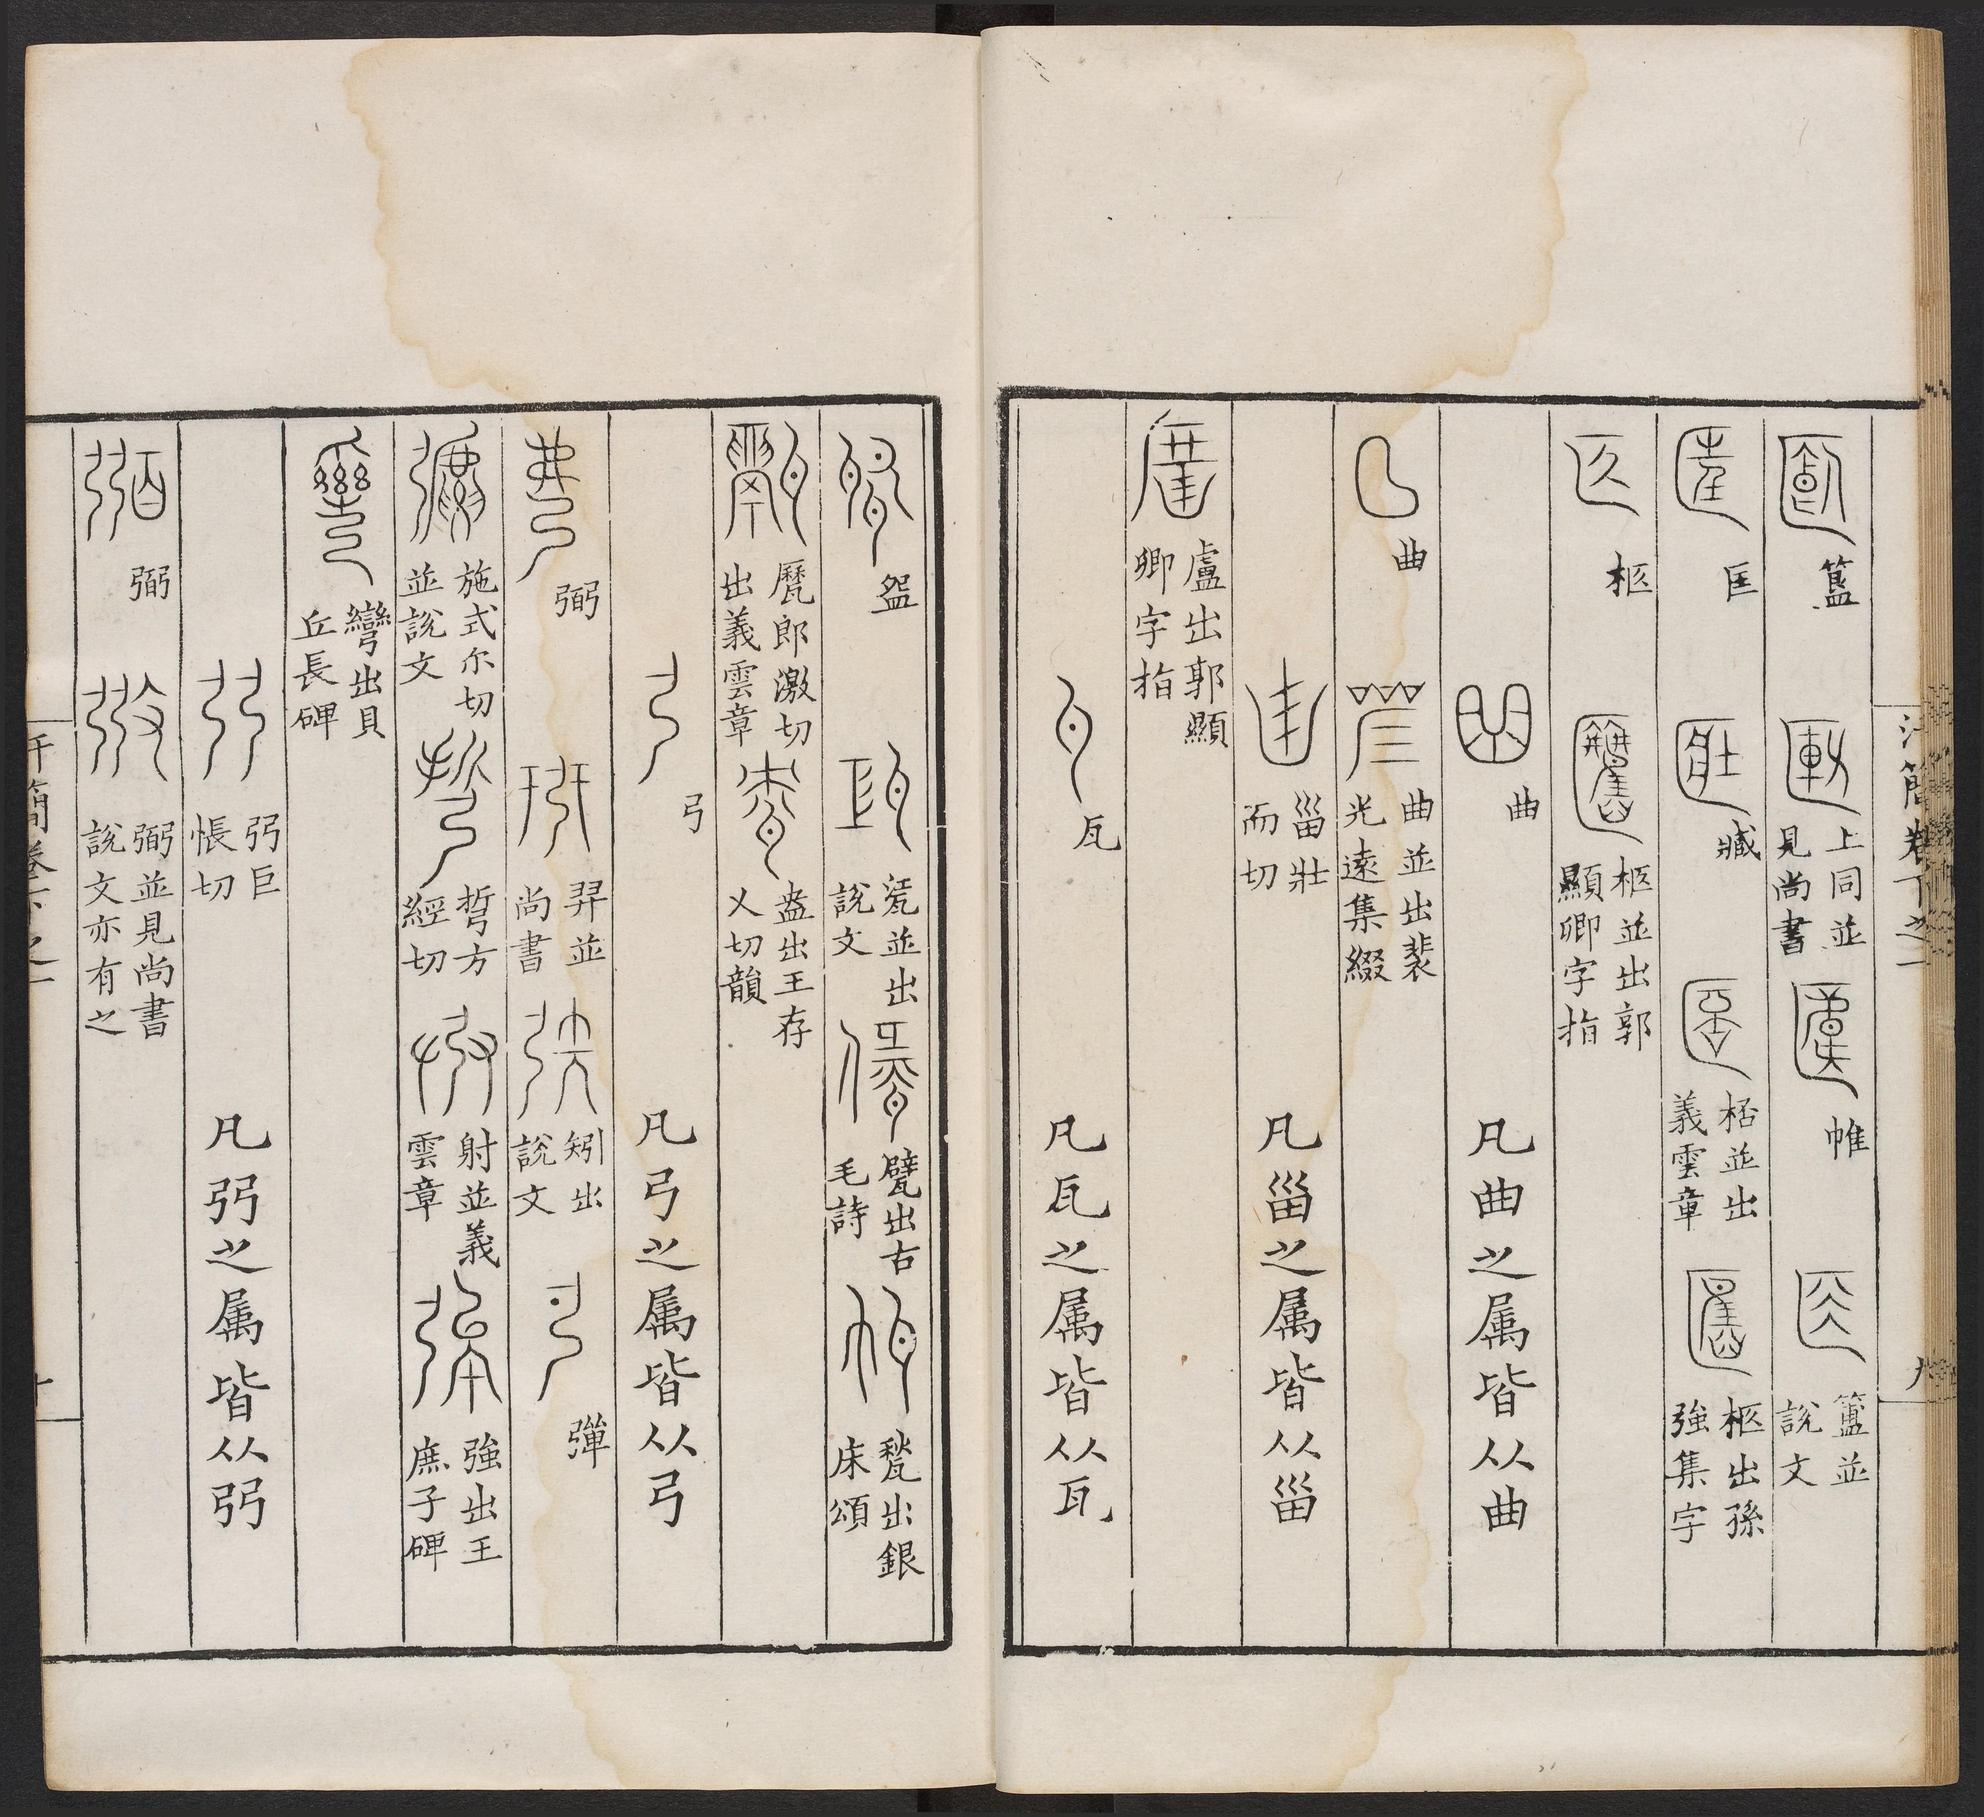 汗簡卷下之一 九
簋 上同並見尚書 帷 簠並說文
匡 臧 桮並出義雲章 柩出孫強集字
柩 柩並出郭顯卿字指
曲 凡曲之属皆从曲
曲 曲並出裴光遠集綴
甾壯而切 凡甾之属皆从甾
盧出郭顯卿字指
瓦 凡瓦之属皆从瓦
盌 㼚並出說文 甓出古毛詩 甃出銀床頌
㽁郎激切出義雲章 盎出王存乂切韻
弓 凡弓之属皆从弓
弼 羿並尚書 矧出說文 彈
施式尔切並說文 方經切 射並義雲章 強出王庶子碑
彎出貝丘長碑
弜巨悵切 凡弜之属皆从弜
弼 弼並見尚書說文亦有之
汗簡卷下之一 十